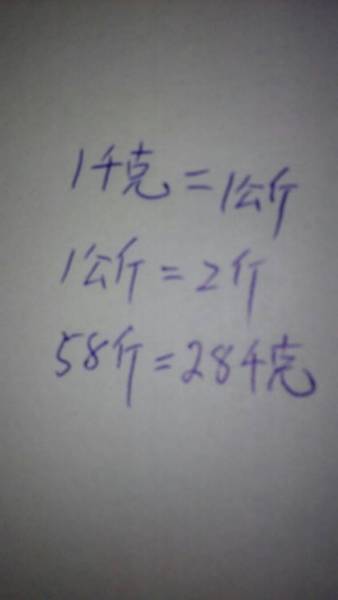 1千克=1公斤
1公斤=2斤
58斤=28千克